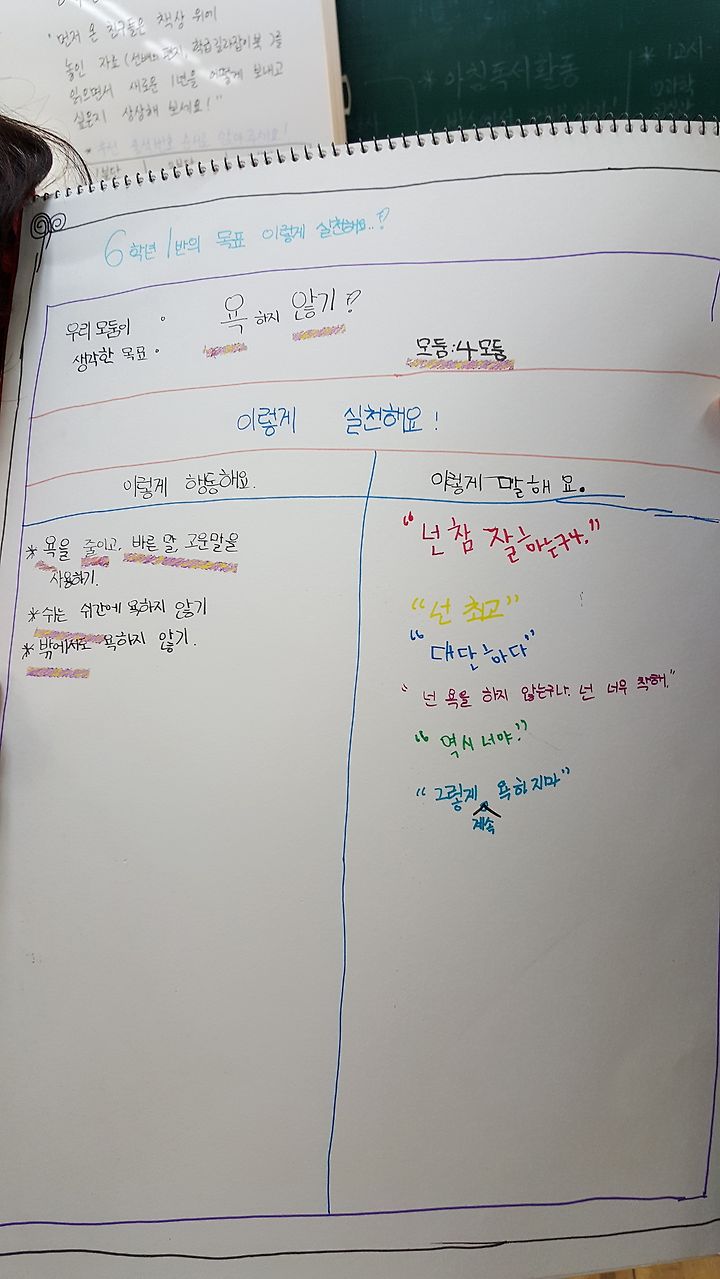 "먼저 온 친구들은 책상 위에
놓인 자료(선배의 편지, 학급길라잡이북)를
읽으면서 새로운 1년을 어떻게 보내고
싶은지 상상해 보세요!"
* 아침독서활동
* 1교시
6학년 1반의 목표 이렇게 실천해요..?
우리 모둠이
생각한 목표 : 욕하지 않기?
모둠:4모둠
이렇게 실천해요!
이렇게 행동해요.
* 욕을 줄이고, 바른 말, 고운말을
사용하기.
* 쉬는 쉬간에 욕하지 않기
* 밖에서도 욕하지 않기.
이렇게 말해요.
"넌 참 잘하는구나."
"넌 최고"
"대단하다"
"넌 욕을 하지 않는구나. 넌 너무 착해."
"역시 너야!"
"그렇게 계속 욕하지마"